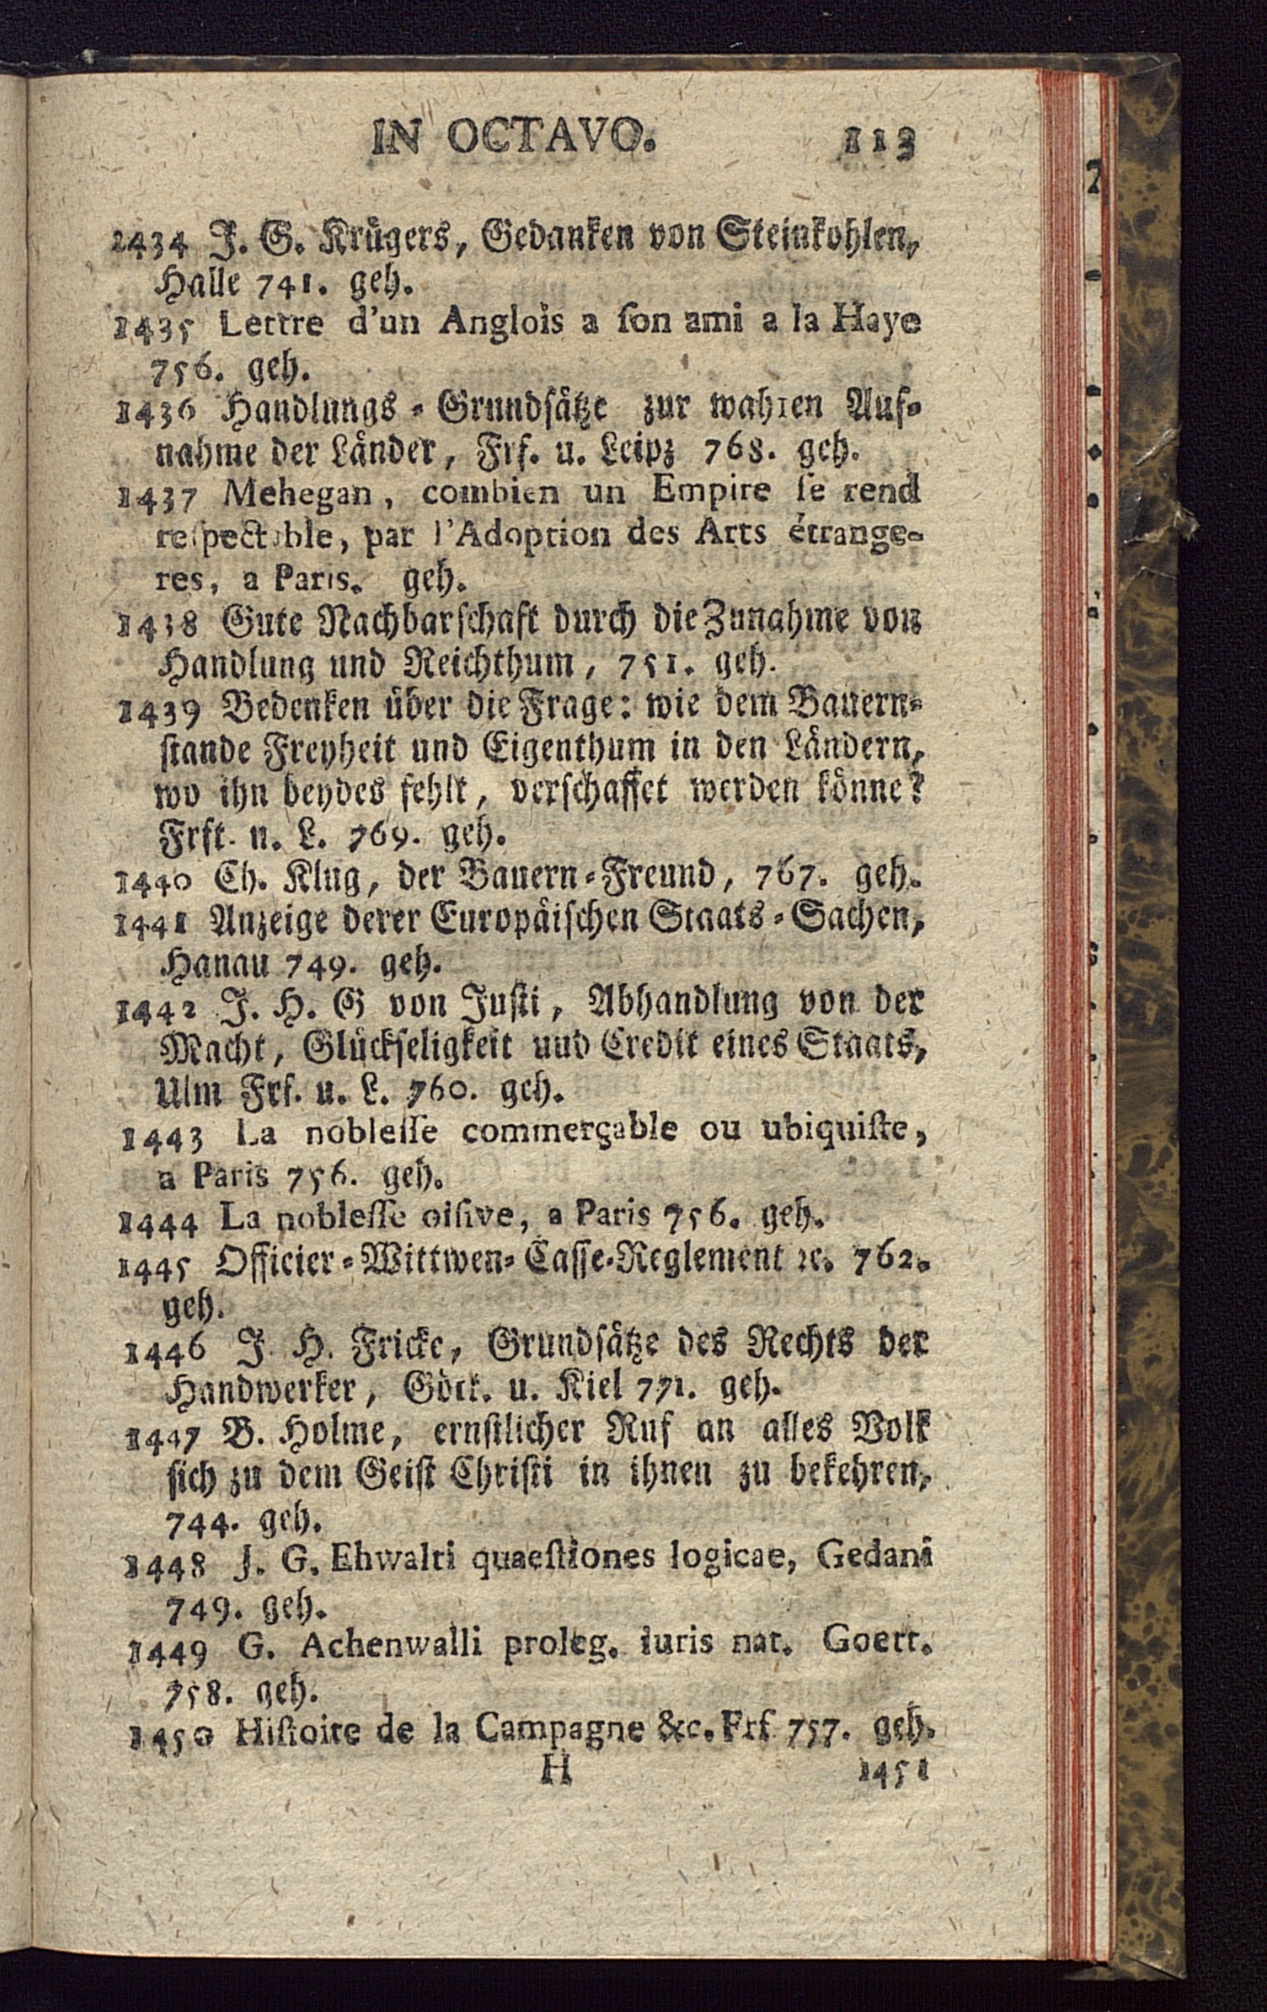 IN OCTAVO. 113
1434 J. G. Krügers, Gedanken von Steinkohlen,
Halle 741. geh.
1435 Lettre d'un Anglois a ſon ami a la Haye
756. geh.
1436 Handlungs-Grundſätze zur wahren Auf-
nahme der Länder, Frf. u. Leipz 768. geh.
1437 Mehegan, combien un Empire ſe rend
reſpectable, par l'Adoption des Arts étrange-
res, a Paris. geh.
1438 Gute Nachbarſchaft durch die Zunahme von
Handlung und Reichthum, 751. geh.
1439 Bedenken über die Frage: wie dem Bauern-
ſtande Freyheit und Eigenthum in den Ländern,
wo ihn beydes fehlt, verſchaffet werden könne?
Frft. u. L. 769. geh.
1440 Ch. Klug, der Bauern-Freund, 767. geh.
1441 Anzeige derer Europäiſchen Staats-Sachen,
Hanau 749. geh.
1442 J. H. G von Juſti, Abhandlung von der
Macht, Glückſeligkeit uud Credit eines Staats,
Ulm Frf. u. L. 760. geh.
1443 La nobleſſe commerçable ou ubiquiſte,
a Paris 756. geh.
1444 La nobleſſe oiſive, a Paris 756. geh.
1445 Officier-Wittwen-Caſſe-Reglement ꝛc. 762.
geh.
1446 J. H. Fricke, Grundſätze des Rechts der
Handwerker, Gött. u. Kiel 771. geh.
1447 B. Holme, ernſtlicher Ruf an alles Volk
ſich zu dem Geiſt Chriſti in ihnen zu bekehren,
744. geh.
1448 J. G. Ehwalti quaeſtiones logicae, Gedani
749. geh.
1449 G. Achenwalli proleg. iuris nat. Goett.
758. geh.
1450 Hiſtoire de la Campagne &c. Frf 757. geh.
H 1451